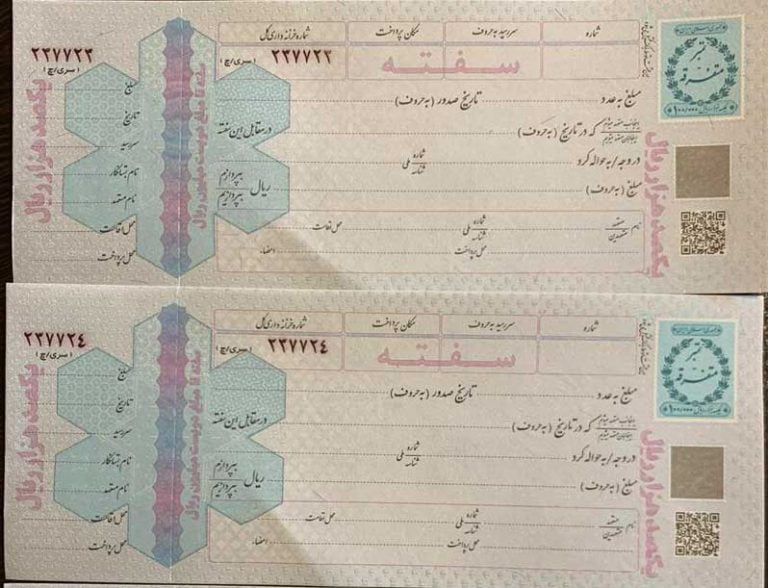 شماره
سررسید به حروف
مکان پرداخت
شماره خزانه داری کل
۲۳۷۷۲۳
(سری/چ)
سفته
جمهوری اسلامی ایران
تمبر
متفرقه
۱۰۰/۰۰۰
مبلغ به عدد
تاریخ صدور (به حروف)
که در تاریخ (به حروف)
در وجه/به حواله کرد
شماره ملی
شناسه
مبلغ (به حروف)
در مقابل این سفته
ریال
بپردازم
بپردازیم
نام متعهد
متعهدین
شماره ملی
شناسه
محل اقامت
محل پرداخت
امضاء
یکصد هزار ریال
سفته تا مبلغ دویست میلیون ریال
۲۳۷۷۲۳
(سری/چ)
مبلغ
تاریخ
سررسید
نام بستانکار
نام متعهد
محل اقامت
محل پرداخت
یکصد هزار ریال
شماره
سررسید به حروف
مکان پرداخت
شماره خزانه داری کل
۲۳۷۷۲٤
(سری/چ)
سفته
جمهوری اسلامی ایران
تمبر
متفرقه
۱۰۰/۰۰۰
مبلغ به عدد
تاریخ صدور (به حروف)
که در تاریخ (به حروف)
در وجه/به حواله کرد
شماره ملی
شناسه
مبلغ (به حروف)
در مقابل این سفته
ریال
بپردازم
بپردازیم
نام متعهد
متعهدین
شماره ملی
شناسه
محل اقامت
محل پرداخت
امضاء
یکصد هزار ریال
سفته تا مبلغ دویست میلیون ریال
۲۳۷۷۲٤
(سری/چ)
مبلغ
تاریخ
سررسید
نام بستانکار
نام متعهد
محل اقامت
محل پرداخت
یکصد هزار ریال